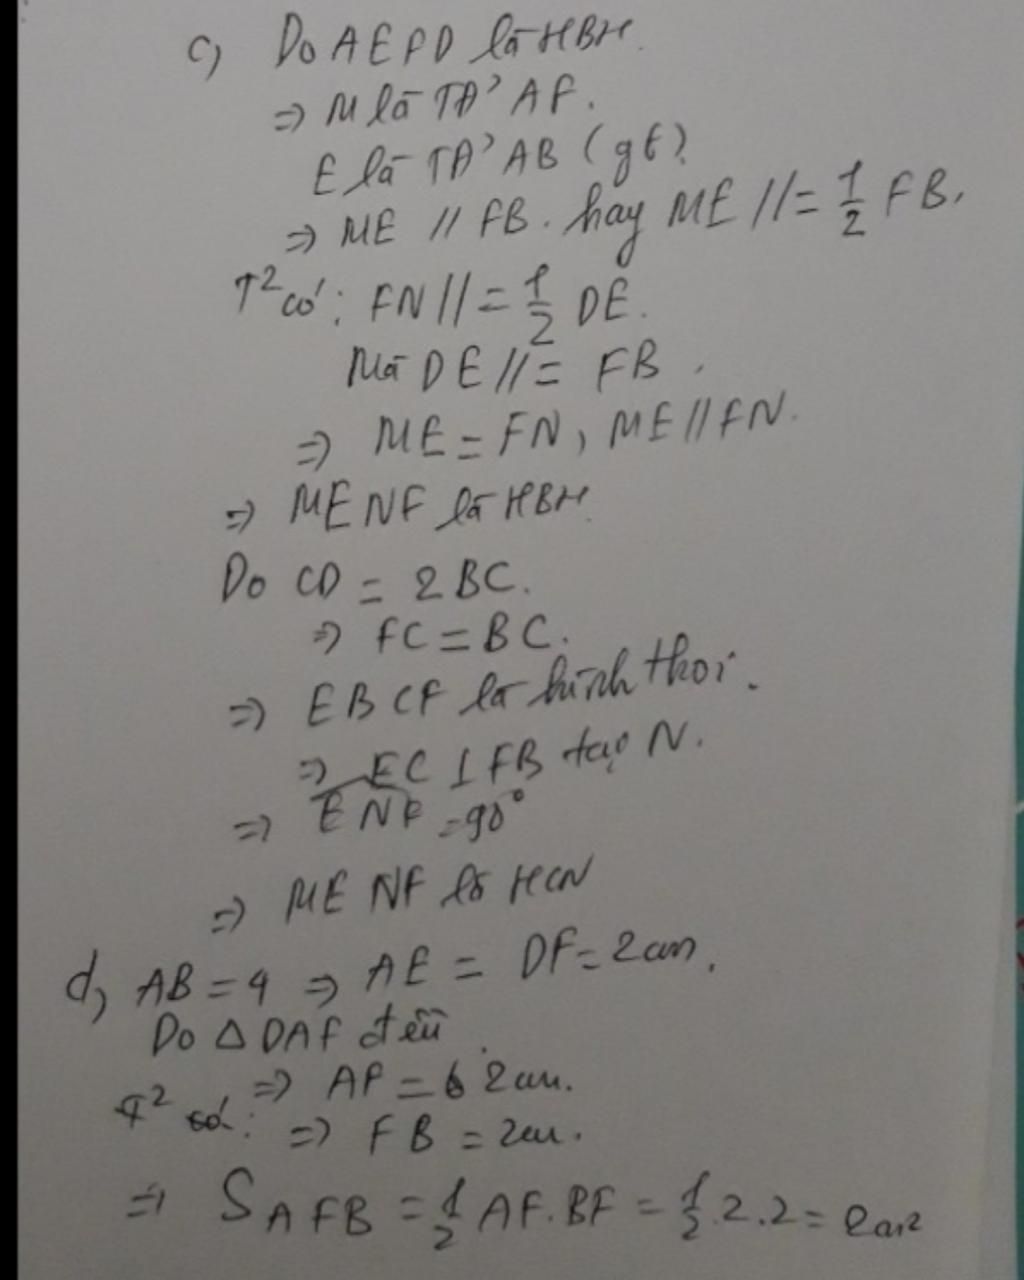 c) Do AEFD là HBH.
=> M là TĐ' AF.
E là TĐ' AB (gt)
=> ME // FB. hay ME //= 1/2 FB.
T² có: FN //= 1/2 DE.
Mà DE //= FB.
=> ME = FN, ME // FN.
=> MENF là HBH.
Do CD = 2 BC.
=> FC = BC.
=> EBCF là hình thoi.
=> EC ⊥ FB tại N.
=> ENF = 90°
=> MENF là HCN
d, AB = 4 => AE = DF = 2cm.
Do Δ DAF đều.
=> AF = 2cm.
T² có: => FB = 2cm.
=> S AFB = 1/2 AF.BF = 1/2.2.2 = 2cm²